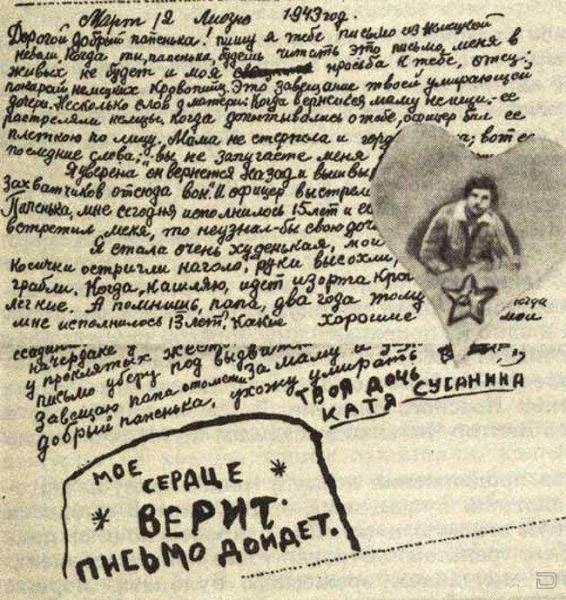 Март 12 Лиозно 1943 год.
Дорогой добрый папенька! пишу я тебе письмо из немецкой
неволи. Когда ты, папенька, будешь читать это письмо, меня в
живых не будет и моя просьба к тебе, отец:
покарай немецких кровопийц. Это завещание твоей умирающей
дочери. Несколько слов о матери. Когда вернешься маму не ищи. ее
растреляли немцы. Когда допытывались о тебе, офицер бил ее
плеткою по лицу. Мама не стерпела и вот ее
последние слова: „вы не запугаете меня
Я уверена он вернется назад и вышв
захватчиков отсюда вон. И офицер выстрел
Папенька, мне сегодня исполнилось 15 лет и ес
встретил меня, то не узнал-бы свою доч
Я стала очень худенькая, мои
косички остригли наголо, руки высохли,
грабли. Когда кашляю, идет изо рта кро
легкие. А помнишь, папа, два года тому когда
мне исполнилось 13 лет, какие хорошие мои
на чердаке у
у проклятых жест
письмо уберу под
Завещаю папа отомсти. За маму и
добрый папенька, ухожу умирать
ТВОЯ ДОЧЬ
КАТЯ СУСАНИНА
МОЕ
СЕРДЦЕ
ВЕРИТ.
ПИСЬМО ДОЙДЕТ.